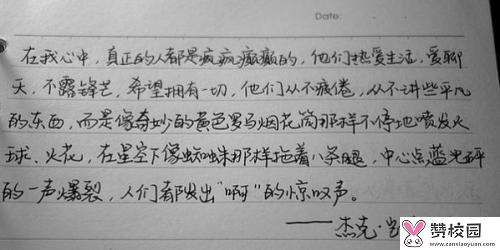 Date:
在我心中,真正的人都是疯疯癫癫的,他们热爱生活,爱聊
天,不露锋芒,希望拥有一切,他们从不疲倦,从不讲些平凡
的东西,而是像奇妙的黄色罗马烟花筒那样不停地喷发火
球、火花,在星空下像蜘蛛那样拖着八条腿,中心点蓝光砰
的一声爆裂,人们都发出“啊”的惊叹声。
——杰克
赞校园
www.zanxiaoyuan.com